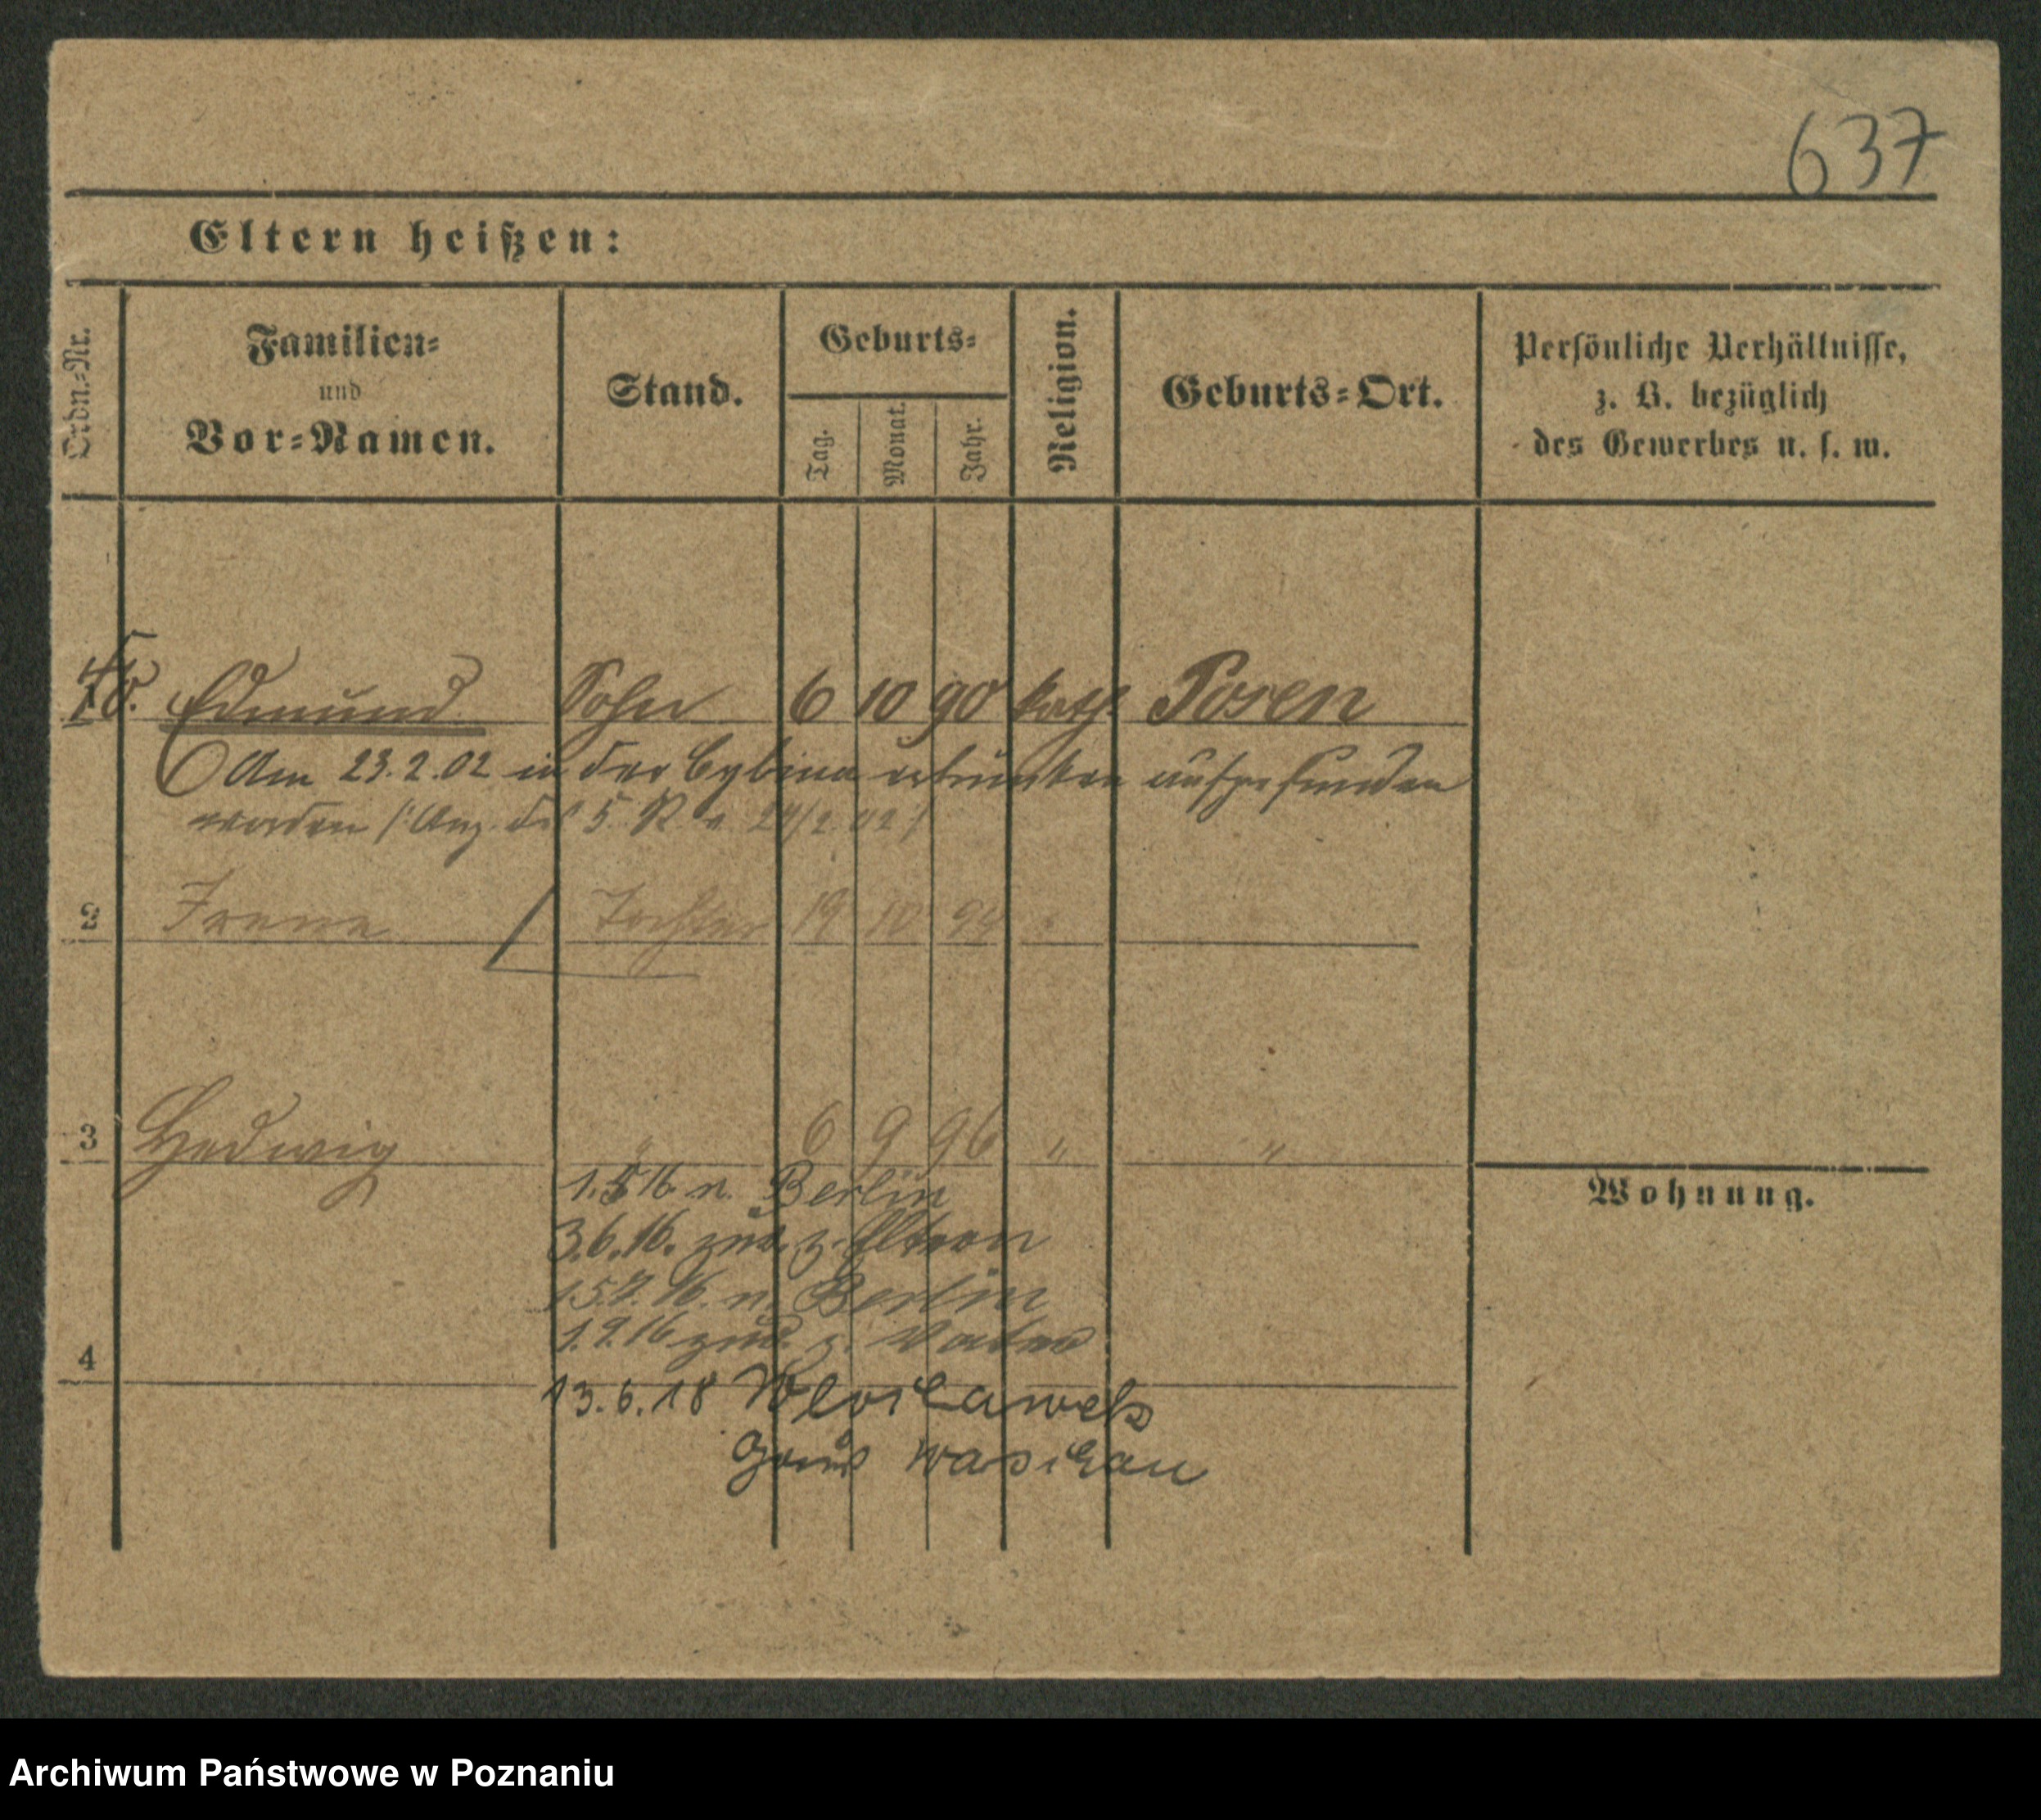 637
Eltern heißen:
Ordn.-Nr.
Familien-
und
Vor-Namen.
Stand.
Geburts-
Tag.
Monat.
Jahr.
Religion.
Geburts-Ort.
Persönliche Verhältnisse,
z. B. bezüglich
des Gewerbes u. s. w.
Edmund Sohn 6 10 90 kath. Posen
Am 23.2.02 in der Cybina ertrunken aufgefunden
worden (Anz. des 5. R. v. 24/2.02)
2 Irene Tochter 19 10 94
3 Hedwig " 6 9 96 " "
1.5.16 n. Berlin
3.6.16. zur. z. Eltern
15.7.16. n. Berlin
1.9.16 zur. z. Vater
4
13.6.18 Wloclawek
Wohnung.
Archiwum Państwowe w Poznaniu